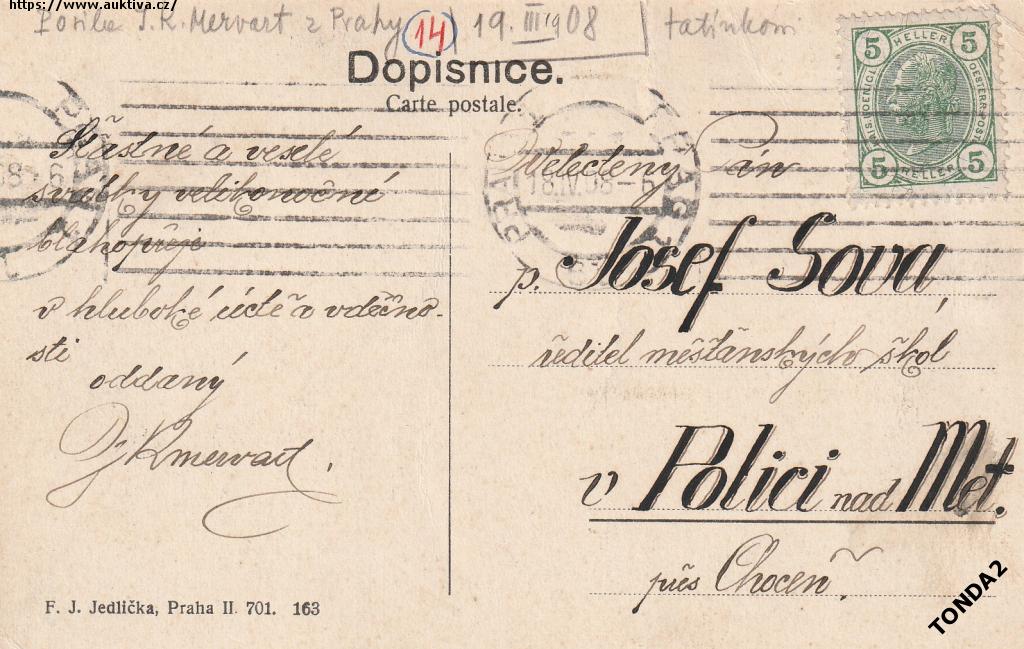 https://www.auktiva.cz/
J. R. Mervart z Prahy 14 19. III 1908 tatínkom
Dopisnice.
Carte postale.
5 HELLER 5
5 HELLER 5
18.IV.08-6
Šťastné a veselé
svátky velikonoční
blahopřeje
v hluboké úctě a vděčno-
sti
oddaný
JRmervart.
Velectěný Pán
p. Josef Sova,
ředitel měšťanských škol
v Polici nad Met.
přes Choceň
F. J. Jedlička, Praha II. 701. 163
TONDA2